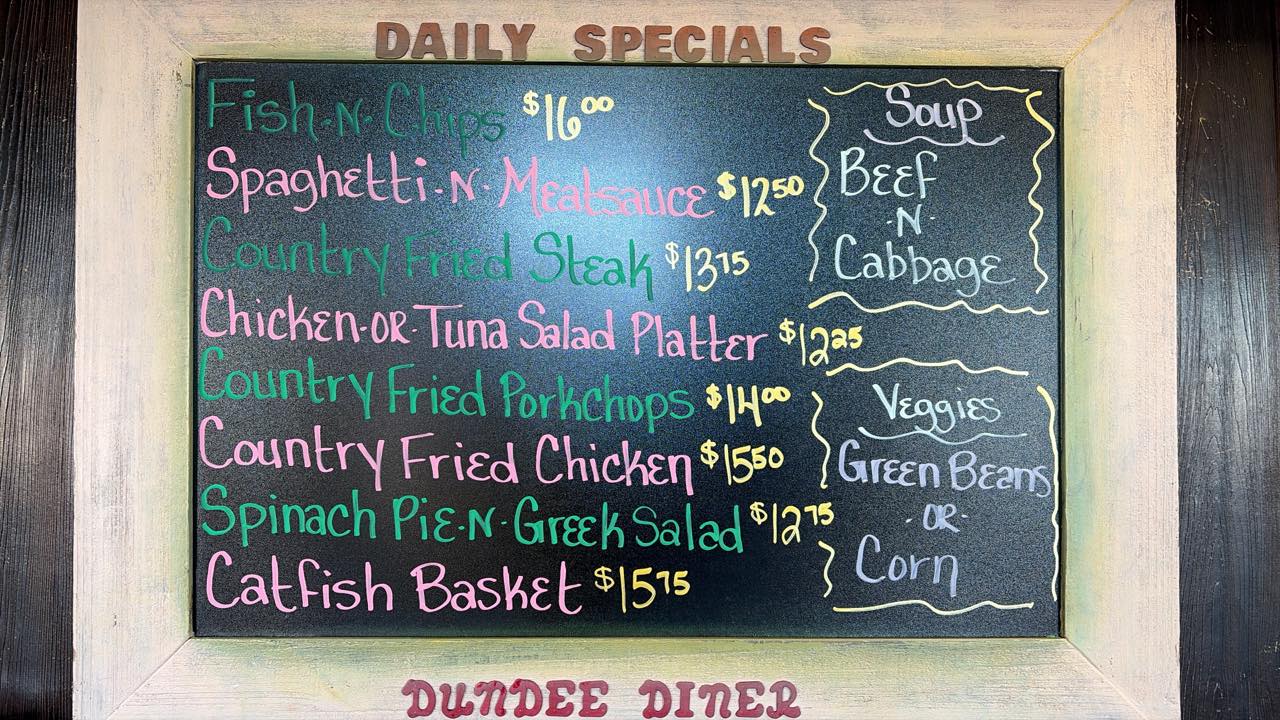 DAILY SPECIALS
Fish·N·Chips $16.00
Spaghetti·N·Meatsauce $12.50
Country Fried Steak $13.75
Chicken·OR·Tuna Salad Platter $12.25
Country Fried Porkchops $14.00
Country Fried Chicken $15.50
Spinach Pie·N·Greek Salad $12.75
Catfish Basket $15.75
Soup
Beef
·N·
Cabbage
Veggies
Green Beans
·OR·
Corn
DUNDEE DINER